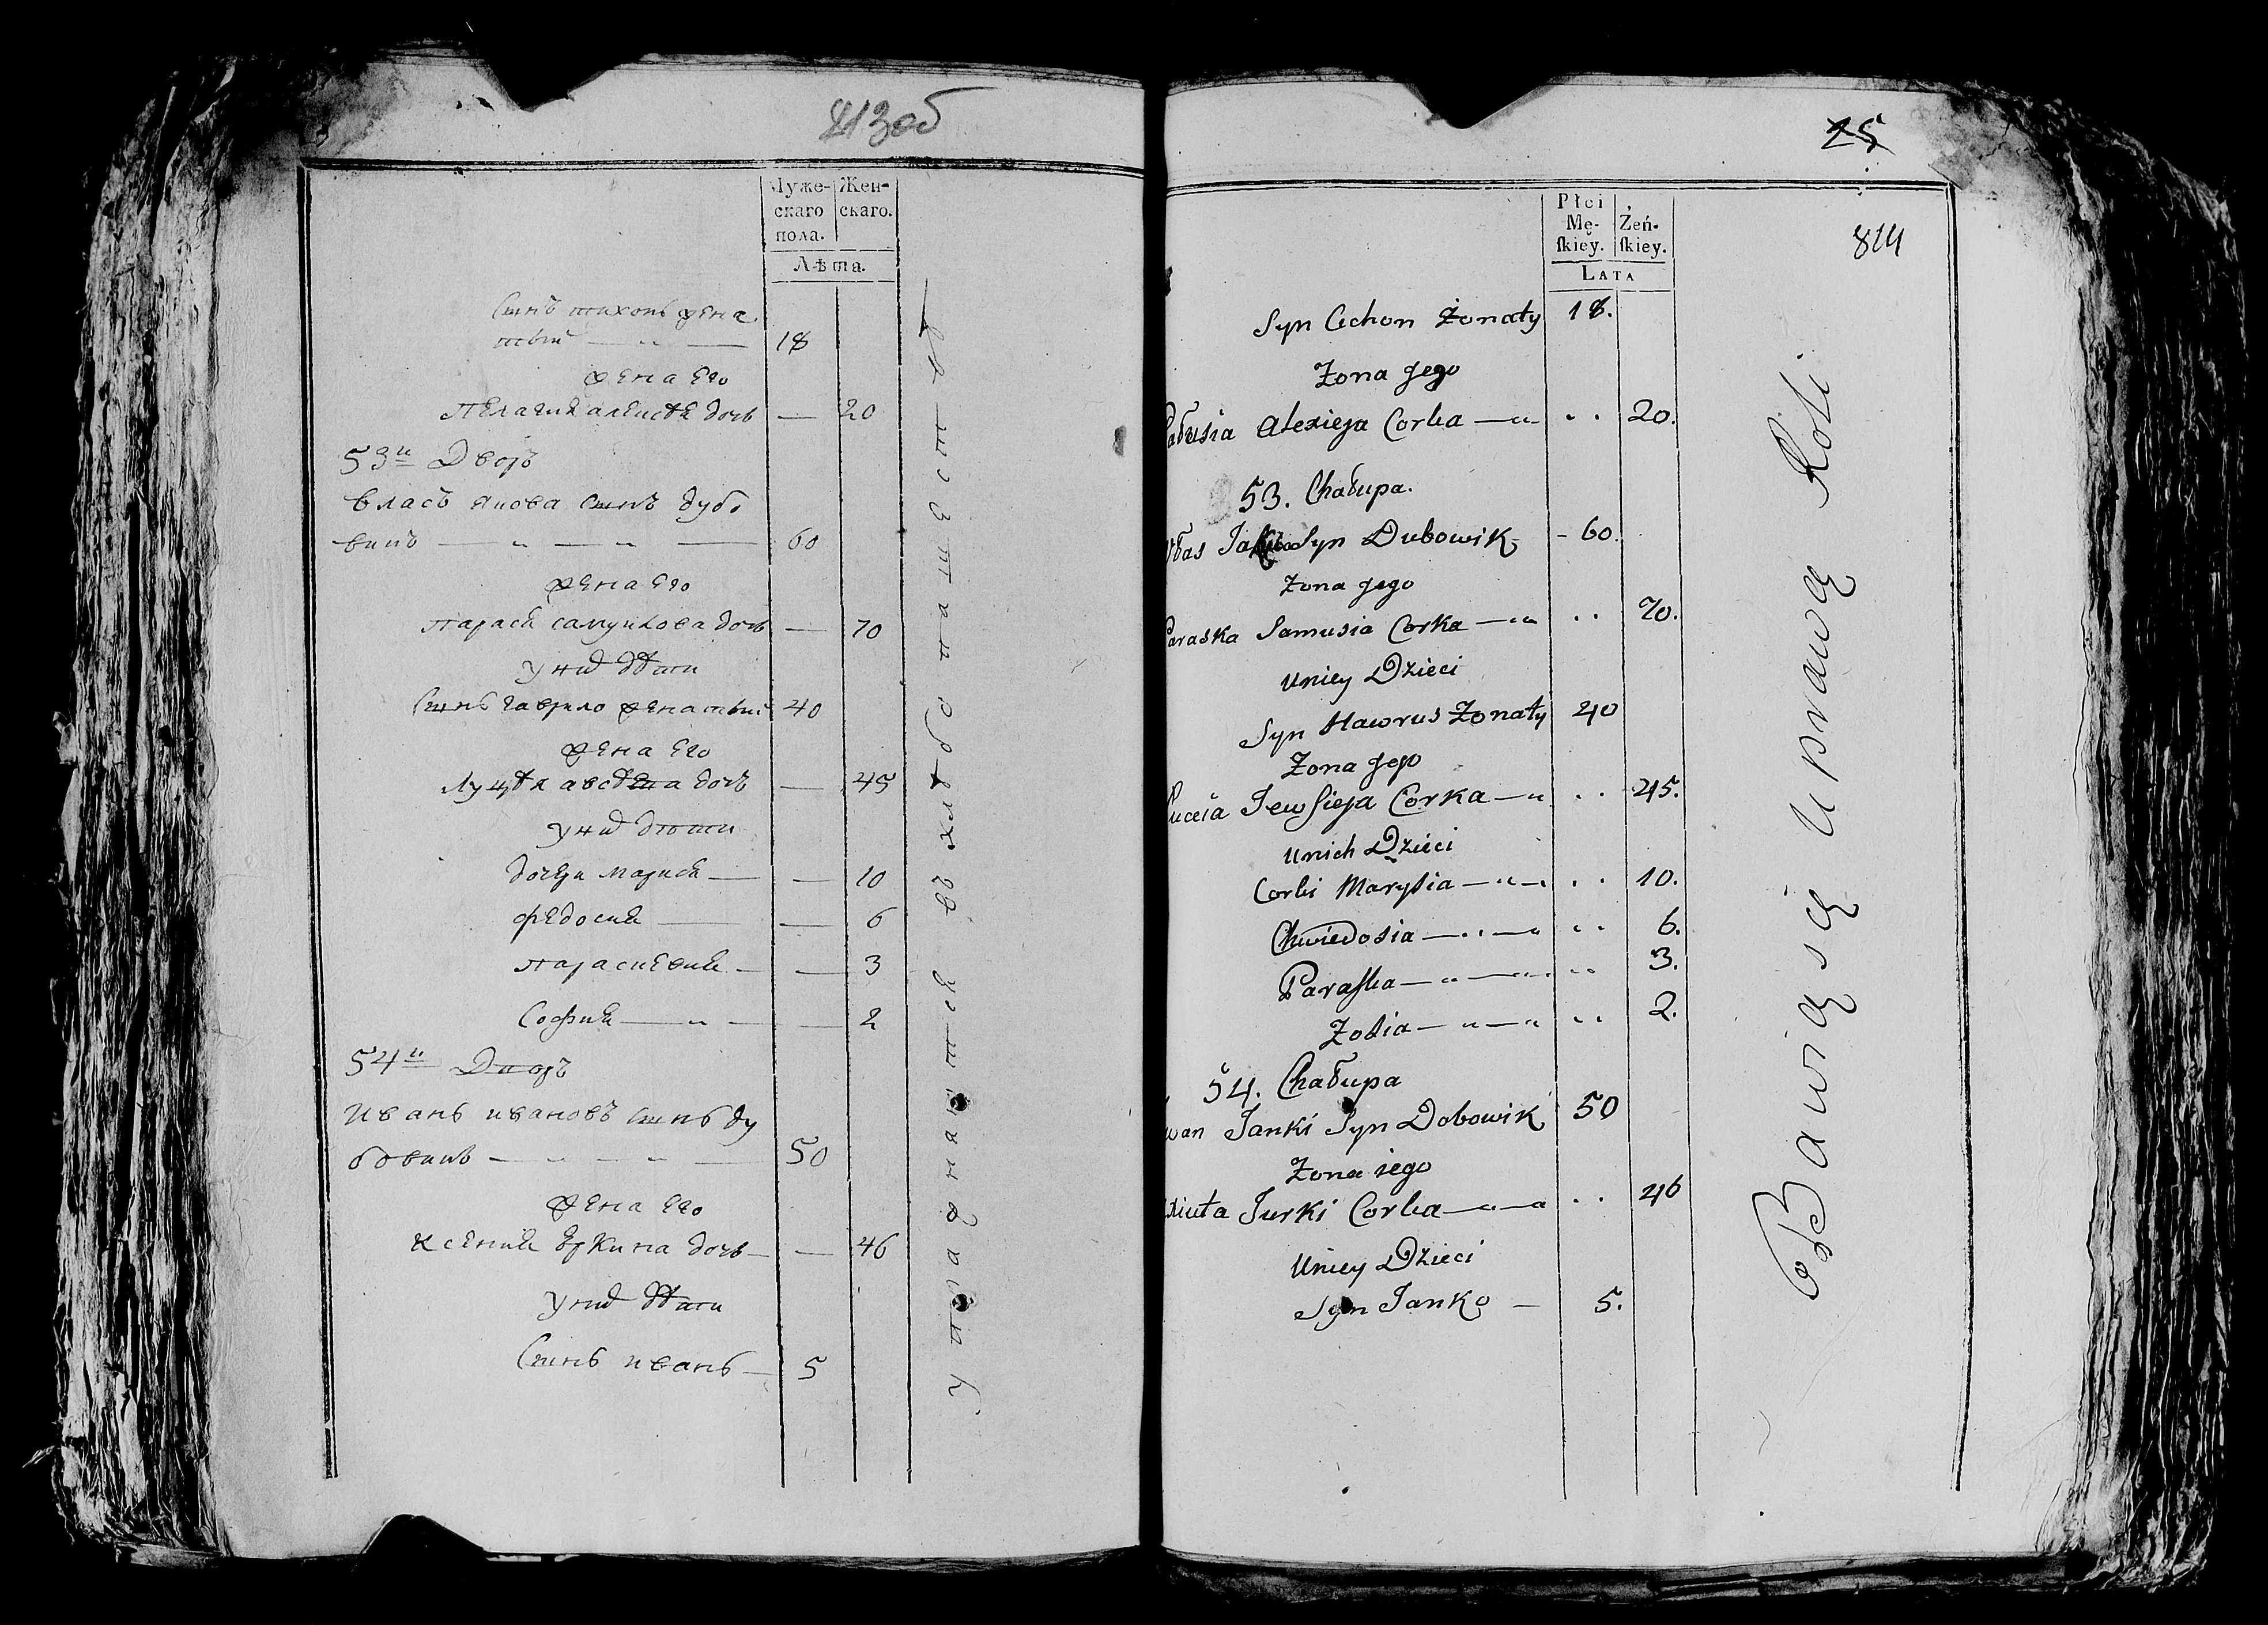 813об
Муже-
скаго
пола.
Жен-
скаго.
Лѣта.
Сынъ тихонъ жена
тый 18
жена Его
пелагия алексѣя дочь 20
53й Дворъ
власъ якова сынъ дубо
викъ 60
жена Его
парася самуилова дочь 70
у нихъ дѣти
Сынъ гаврило женатый 40
жена Его
Луцѣя авсѣева дочь 45
у нихъ дѣти
дочери марися 10
федосия 6
парасковия 3
София 2
54й Дворъ
Иванъ ивановъ сынъ ду
бовикъ 50
жена Его
ксения юркина дочь 46
у нихъ дѣти
Сынъ иванъ 5
упражняются въ хлѣбопашествѣ
25
814
Płci
Mę-
skiey.
Żeń-
skiey.
LATA
Syn Cichon Żonaty 18.
Żona Jego
Pałusia Alexieja Corka 20.
53. Chałupa.
Ułas Jakuba Syn Dubowik 60.
Żona Jego
Paraska Samusia Corka 70.
Uniey Dzieci
Syn Hawrus Żonaty 40
Żona Jego
Łuceia Jewsieja Corka 45.
Unich Dzieci
Corki Marysia 10.
Chwiedosia 6.
Paraska 3.
Zosia 2.
54. Chałupa
Iwan Janki Syn Dobowik 50
Żona iego
Axiuta Jurki Corka 46
Uniey Dzieci
Syn Janko 5.
Bawią się Uprawą Roli